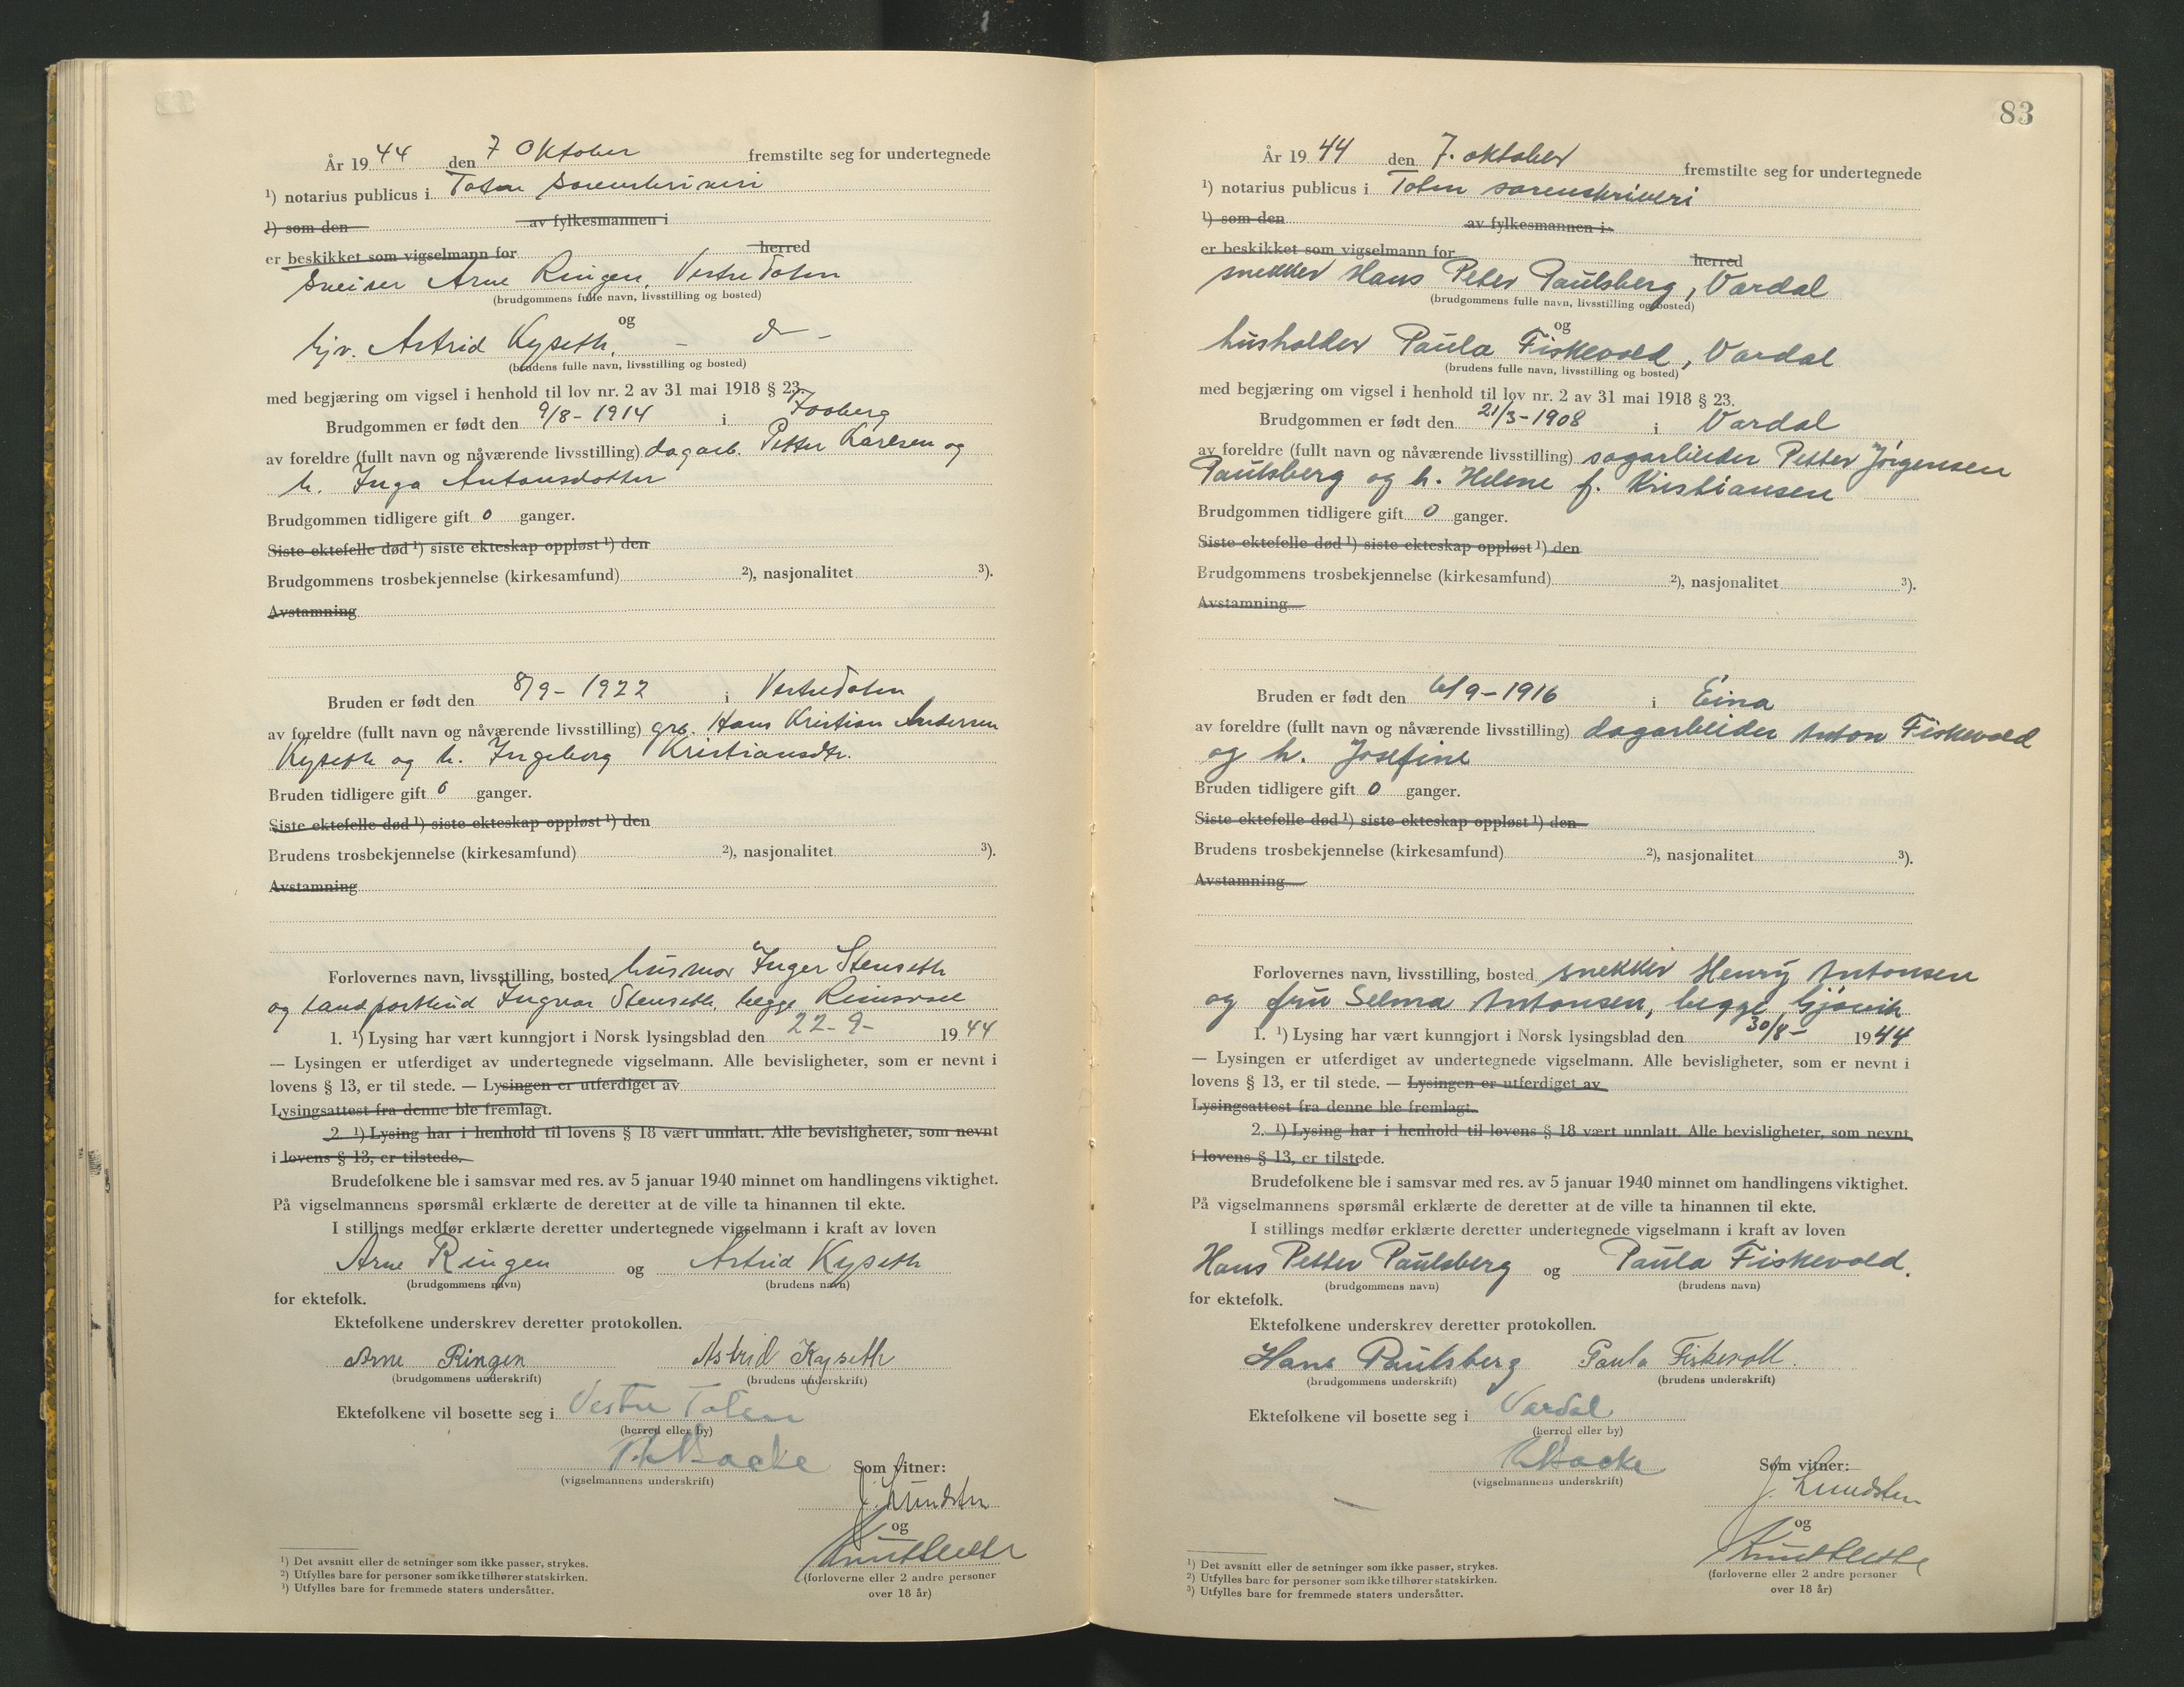 År 1944 den 7 Oktober fremstilte seg for undertegnede
¹) notarius publicus i Toten sorenskriveri
¹) som den av fylkesmannen i
er beskikket som vigselmann for herred
sveiser Arne Ringen, Vestre Toten
(brudgommens fulle navn, livsstilling og bosted)
og
hjv. Astrid Kyseth, - do -
(brudens fulle navn, livsstilling og bosted)
med begjæring om vigsel i henhold til lov nr. 2 av 31 mai 1918 § 23.
Brudgommen er født den 9/8-1914 i Fåberg
av foreldre (fullt navn og nåværende livsstilling) dagarb. Petter Karlsen og
h. Inga Antonsdotter
Brudgommen tidligere gift 0 ganger.
Siste ektefelle død ¹) siste ekteskap oppløst ¹) den
Brudgommens trosbekjennelse (kirkesamfund) ²), nasjonalitet ³).
Avstamning
Bruden er født den 8/9-1922 i Vestre Toten
av foreldre (fullt navn og nåværende livsstilling) grb. Hans Kristian Andersen
Kyseth og h. Ingeborg Kristiansdtr.
Bruden tidligere gift 0 ganger.
Siste ektefelle død ¹) siste ekteskap oppløst ¹) den
Brudens trosbekjennelse (kirkesamfund) ²), nasjonalitet ³).
Avstamning
Forlovernes navn, livsstilling, bosted husmor Inger Stenseth
og landpostbud Ingvar Stenseth, begge Reinsvoll
1. ¹) Lysing har vært kunngjort i Norsk lysingsblad den 22-9- 1944
— Lysingen er utferdiget av undertegnede vigselmann. Alle bevisligheter, som er nevnt i
lovens § 13, er til stede. — Lysingen er utferdiget av
Lysingsattest fra denne ble fremlagt.
2. ¹) Lysing har i henhold til lovens § 18 vært unnlatt. Alle bevisligheter, som nevnt
i lovens § 13, er tilstede.
Brudefolkene ble i samsvar med res. av 5 januar 1940 minnet om handlingens viktighet.
På vigselmannens spørsmål erklærte de deretter at de ville ta hinannen til ekte.
I stillings medfør erklærte deretter undertegnede vigselmann i kraft av loven
Arne Ringen og Astrid Kyseth
(brudgommens navn) (brudens navn)
for ektefolk.
Ektefolkene underskrev deretter protokollen.
Arne Ringen Astrid Kyseth
(brudgommens underskrift) (brudens underskrift)
Ektefolkene vil bosette seg i Vestre Toten
(herred eller by)
Backe Som vitner:
(vigselmannens underskrift)
J. Lundsten
og
(forloverne eller 2 andre personer
over 18 år)
¹) Det avsnitt eller de setninger som ikke passer, strykes.
²) Utfylles bare for personer som ikke tilhører statskirken.
³) Utfylles bare for fremmede staters undersåtter.
83
År 1944 den 7. oktober fremstilte seg for undertegnede
¹) notarius publicus i Toten sorenskriveri
¹) som den av fylkesmannen i
er beskikket som vigselmann for herred
snekker Hans Peter Paulsberg, Vardal
(brudgommens fulle navn, livsstilling og bosted)
og
husholder Paula Fiskevold, Vardal
(brudens fulle navn, livsstilling og bosted)
med begjæring om vigsel i henhold til lov nr. 2 av 31 mai 1918 § 23.
Brudgommen er født den 21/3-1908 i Vardal
av foreldre (fullt navn og nåværende livsstilling) sagarbeider Petter Jørgensen
Paulsberg og h. Helene f. Kristiansen
Brudgommen tidligere gift 0 ganger.
Siste ektefelle død ¹) siste ekteskap oppløst ¹) den
Brudgommens trosbekjennelse (kirkesamfund) ²), nasjonalitet ³).
Avstamning
Bruden er født den 6/9-1916 i Eina
av foreldre (fullt navn og nåværende livsstilling) dagarbeider Anton Fiskevold
og h. Josefine
Bruden tidligere gift 0 ganger.
Siste ektefelle død ¹) siste ekteskap oppløst ¹) den
Brudens trosbekjennelse (kirkesamfund) ²), nasjonalitet ³).
Avstamning
Forlovernes navn, livsstilling, bosted snekker Henry Antonsen
og fru Selma Antonsen, begge Gjøvik
1. ¹) Lysing har vært kunngjort i Norsk lysingsblad den 30/8- 1944
— Lysingen er utferdiget av undertegnede vigselmann. Alle bevisligheter, som er nevnt i
lovens § 13, er til stede. — Lysingen er utferdiget av
Lysingsattest fra denne ble fremlagt.
2. ¹) Lysing har i henhold til lovens § 18 vært unnlatt. Alle bevisligheter, som nevnt
i lovens § 13, er tilstede.
Brudefolkene ble i samsvar med res. av 5 januar 1940 minnet om handlingens viktighet.
På vigselmannens spørsmål erklærte de deretter at de ville ta hinannen til ekte.
I stillings medfør erklærte deretter undertegnede vigselmann i kraft av loven
Hans Petter Paulsberg og Paula Fiskevold.
(brudgommens navn) (brudens navn)
for ektefolk.
Ektefolkene underskrev deretter protokollen.
Hans Paulsberg Paula Fiskevoll.
(brudgommens underskrift) (brudens underskrift)
Ektefolkene vil bosette seg i Vardal
(herred eller by)
Backe Som vitner:
(vigselmannens underskrift)
J. Lundsten
og
(forloverne eller 2 andre personer
over 18 år)
¹) Det avsnitt eller de setninger som ikke passer, strykes.
²) Utfylles bare for personer som ikke tilhører statskirken.
³) Utfylles bare for fremmede staters undersåtter.